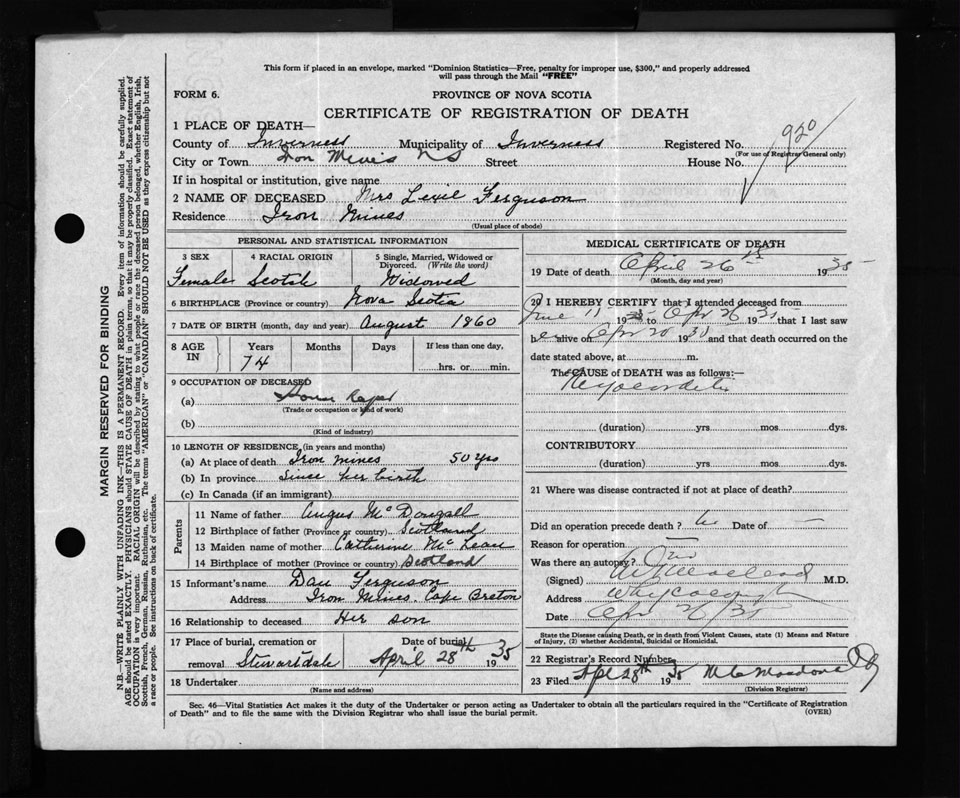 This form if placed in an envelope, marked "Dominion Statistics—Free, penalty for improper use, $300," and properly addressed
will pass through the Mail "FREE"
FORM 6.
PROVINCE OF NOVA SCOTIA
CERTIFICATE OF REGISTRATION OF DEATH
920
1 PLACE OF DEATH—
County of Inverness Municipality of Inverness Registered No.
(For use of Registrar General only)
City or Town Iron Mines NS Street House No.
If in hospital or institution, give name
2 NAME OF DECEASED Mrs Ferguson
Residence Iron Mines
(Usual place of abode)
PERSONAL AND STATISTICAL INFORMATION
3 SEX 4 RACIAL ORIGIN 5 Single, Married, Widowed or
Divorced. (Write the word)
Female Scotch Widowed
6 BIRTHPLACE (Province or country) Nova Scotia
7 DATE OF BIRTH (month, day and year) August 1860
8 AGE IN Years Months Days If less than one day,
74 hrs. or min.
9 OCCUPATION OF DECEASED
(a)
(Trade or occupation or kind of work)
(b)
(Kind of industry)
10 LENGTH OF RESIDENCE (in years and months)
(a) At place of death Iron mines 50 yrs
(b) In province Since her birth
(c) In Canada (if an immigrant)
Parents
11 Name of father Angus McDougall
12 Birthplace of father (Province or country) Scotland
13 Maiden name of mother Catherine McLean
14 Birthplace of mother (Province or country) Scotland
15 Informant's name Dan Ferguson
Address Iron Mines. Cape Breton
16 Relationship to deceased Her son
17 Place of burial, cremation or Date of burial
removal Stewartdale April 28th 1935
18 Undertaker
(Name and address)
MEDICAL CERTIFICATE OF DEATH
19 Date of death April 26 1935
(Month, day and year)
20 I HEREBY CERTIFY that I attended deceased from
June 11 19 to Apr 26 1935 that I last saw
h er alive on Apr 20 19 and that death occurred on the
date stated above, at m.
The CAUSE of DEATH was as follows:—
Myocarditis
(duration) yrs. mos. dys.
CONTRIBUTORY
(duration) yrs. mos. dys.
21 Where was disease contracted if not at place of death?
Did an operation precede death? No Date of —
Reason for operation —
Was there an autopsy? no
(Signed) MacLeod M.D.
Address Whycocomagh
Date Apr 26/35
State the Disease causing Death, or in death from Violent Causes, state (1) Means and Nature
of Injury, (2) whether Accidental, Suicidal or Homicidal.
22 Registrar's Record Number
23 Filed Apl 28th 1935
(Division Registrar)
Sec. 46—Vital Statistics Act makes it the duty of the Undertaker or person acting as Undertaker to obtain all the particulars required in the "Certificate of Registration
of Death" and to file the same with the Division Registrar who shall issue the burial permit.
(OVER)
MARGIN RESERVED FOR BINDING
N.B.—WRITE PLAINLY WITH UNFADING INK—THIS IS A PERMANENT RECORD. Every item of information should be carefully supplied.
AGE should be stated EXACTLY. PHYSICIANS should STATE CAUSE OF DEATH in plain terms, so that it may be properly classified. Exact statement of
OCCUPATION is very important. RACIAL ORIGIN will be described by stating to what people or race the deceased person belonged, whether English, Irish,
Scottish, French, German, Russian, Ruthenian, etc. The terms "AMERICAN" or "CANADIAN" SHOULD NOT BE USED as they express citizenship but not
a race or people. See instructions on back of certificate.